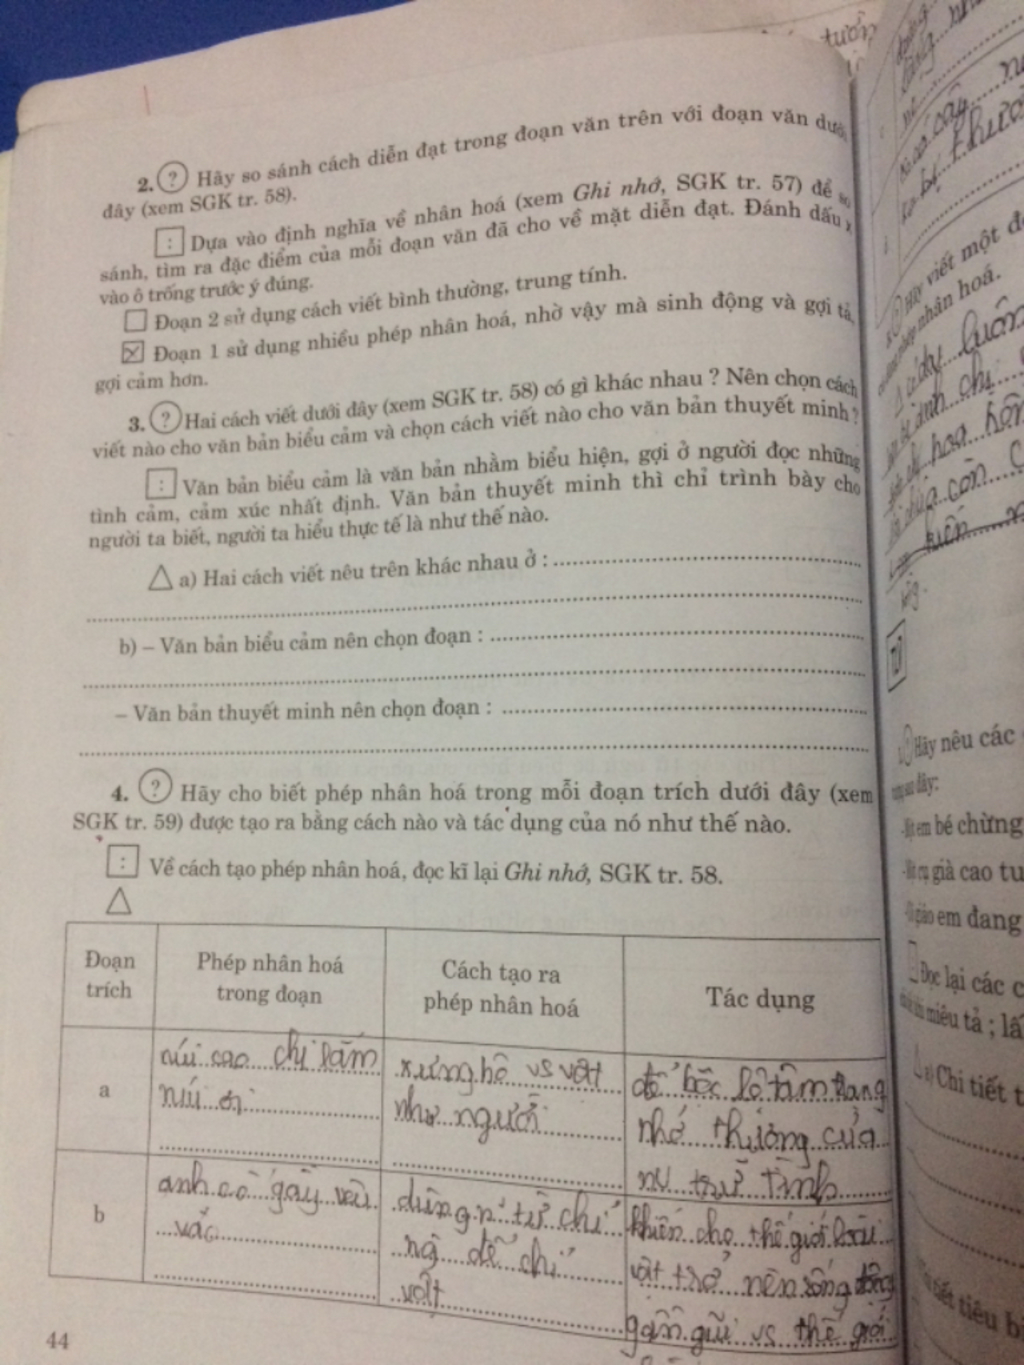 tưởn
2. ? Hãy so sánh cách diễn đạt trong đoạn văn trên với đoạn văn dưới
đây (xem SGK tr. 58).
: Dựa vào định nghĩa về nhân hoá (xem Ghi nhớ, SGK tr. 57) để so
sánh, tìm ra đặc điểm của mỗi đoạn văn đã cho về mặt diễn đạt. Đánh dấu x
vào ô trống trước ý đúng.
Đoạn 2 sử dụng cách viết bình thường, trung tính.
x Đoạn 1 sử dụng nhiều phép nhân hoá, nhờ vậy mà sinh động và gợi tả,
gợi cảm hơn.
3. ? Hai cách viết dưới đây (xem SGK tr. 58) có gì khác nhau ? Nên chọn cách
viết nào cho văn bản biểu cảm và chọn cách viết nào cho văn bản thuyết minh ?
: Văn bản biểu cảm là văn bản nhằm biểu hiện, gợi ở người đọc những
tình cảm, cảm xúc nhất định. Văn bản thuyết minh thì chỉ trình bày cho
người ta biết, người ta hiểu thực tế là như thế nào.
△ a) Hai cách viết nêu trên khác nhau ở :
b) – Văn bản biểu cảm nên chọn đoạn :
– Văn bản thuyết minh nên chọn đoạn :
4. ? Hãy cho biết phép nhân hoá trong mỗi đoạn trích dưới đây (xem
SGK tr. 59) được tạo ra bằng cách nào và tác dụng của nó như thế nào.
: Về cách tạo phép nhân hoá, đọc kĩ lại Ghi nhớ, SGK tr. 58.
△
Đoạn trích
Phép nhân hoá trong đoạn
Cách tạo ra phép nhân hoá
Tác dụng
a
núi cao chi lắm
núi ơi
xưng hô vs vật
như người
để bộc lộ tâm trạng
nhớ thương của
nv trữ tình
b
anh cò gầy
vác
dùng n' từ chỉ
để chỉ
vật
khiến cho thế giới loài
vật trở nên sống động
gần gũi vs thế giới
44
cây
thươ
Hãy viết một đo
phép nhân hoá.
luôn
anh chị
hoa
còn
? Hãy nêu các
đây:
em bé chừng
già cao tu
giáo em đang
Đọc lại các c
miêu tả ; lấ
△ a) Chi tiết t
tiết tiêu b